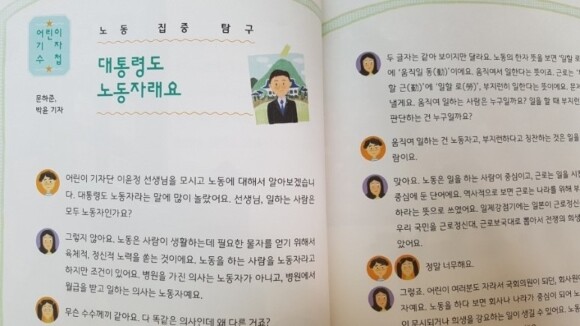 어린이
기 자
수 첩
노 동 집 중 탐 구
대통령도
노동자래요
문하준,
박윤 기자
어린이 기자단 이윤정 선생님을 모시고 노동에 대해서 알아보겠습니
다. 대통령도 노동자라는 말에 많이 놀랐어요. 선생님, 일하는 사람은
모두 노동자인가요?
그렇지 않아요. 노동은 사람이 생활하는데 필요한 물자를 얻기 위해서
육체적, 정신적 노력을 쏟는 것이에요. 노동을 하는 사람을 노동자라고
하지만 조건이 있어요. 병원을 가진 의사는 노동자가 아니고, 병원에서
월급을 받고 일하는 의사는 노동자예요.
무슨 수수께끼 같아요. 다 똑같은 의사인데 왜 다른 거죠?
두 글자는 같아 보이지만 달라요. 노동의 한자 뜻을 보면 '일할 로
에 '움직일 동(動)'이에요. 움직여서 일한다는 뜻이죠. 근로는 '
할 근(勤)'에 '일할 로(勞)', 부지런히 일한다는 뜻이에요. 문제
낼게요. 움직여 일하는 사람은 누구일까요? 일을 할 때 부지런
판단하는 건 누구일까요?
움직여 일하는 건 노동자고, 부지런하다고 칭찬하는 것은 일을
람이요.
맞아요. 노동은 일을 하는 사람이 중심이고, 근로는 일을 시
중심에 둔 단어예요. 역사적으로 보면 근로는 나라를 위해 부
하라는 뜻으로 쓰였어요. 일제강점기에는 일본이 근로정신
우리 국민을 근로정신대, 근로보국대로 뽑아서 전쟁의 희생
았어요.
정말 너무해요.
그렇죠. 어린이 여러분도 자라서 국회의원이 되고, 회사원
자예요. 노동을 하다 보면 회사나 나라가 중심이 되어 노
이 무시되거나 희생을 강요하는 일이 생길 수 있어요.